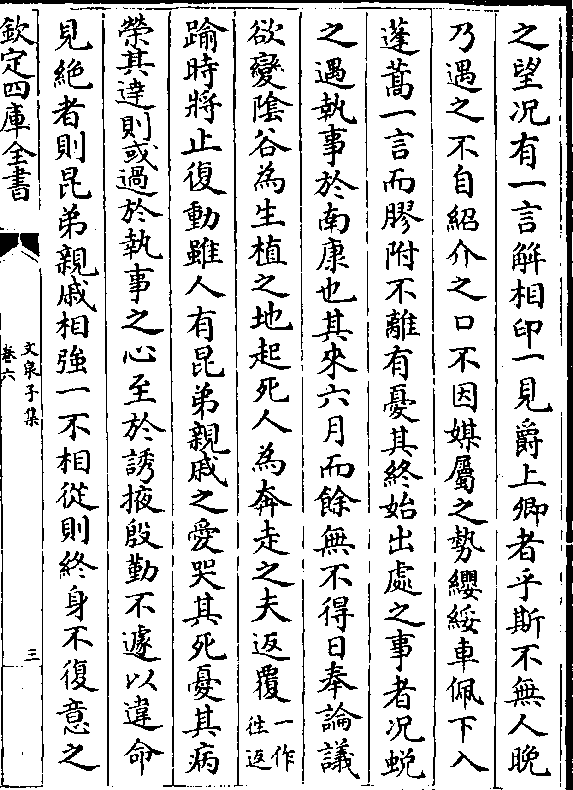 之望况有一言解相印一見爵上卿者乎斯不無人晩
乃遇之不自紹介之口不因媒屬之勢纓綏車佩下入
蓬蒿一言而膠附不離有憂其終始出處之事者况蜕
之遇執事於南康也其來六月而餘無不得日奉論議
欲變隂谷為生植之地起死人為奔走之夫返覆一作徃返
踰時將止復動雖人有昆弟親戚之愛哭其死憂其病
榮其違則或過於執事之心至於誘掖殷勤不遽以違命
見絶者則昆弟親戚相強一不相從則終身不復意之
欽定四庫全書
文泉子集
卷六
三